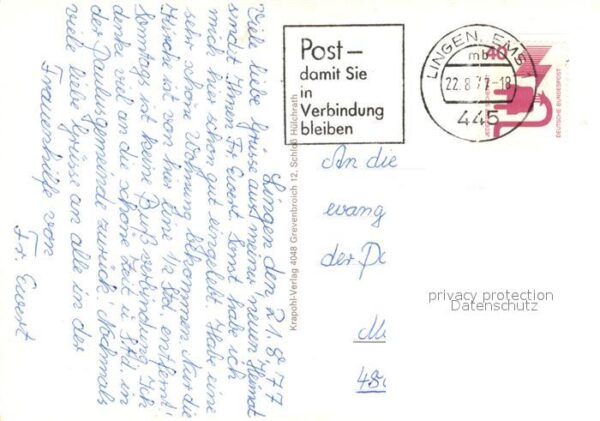 Lingen, den 21.8.77
Viele liebe Grüsse aus meiner neuen Heimat
sendet Ihnen Fr. Ewert. Sonst habe ich
mich schon gut eingelebt. Habe eine
sehr schöne Wohnung bekommen. Nur die
Kirche ist von hier eine 1/2 Std. entfernt!
Sonntags ist keine Bußverbindung. Ich
denke viel an die schöne Zeit in
der Paulusgemeinde zurück. Nochmals
viele liebe Grüsse an alle in der
Frauenhilfe von
Fr. Ewert
Krapohl-Verlag 4048 Grevenbroich 12, Schloß Hülchrath
Post –
damit Sie
in
Verbindung
bleiben
LINGEN, EMS 1
mb
22.8.77-18
445
40
DEUTSCHE BUNDESPOST
An die
evang
der Pa
privacy protection
Datenschutz